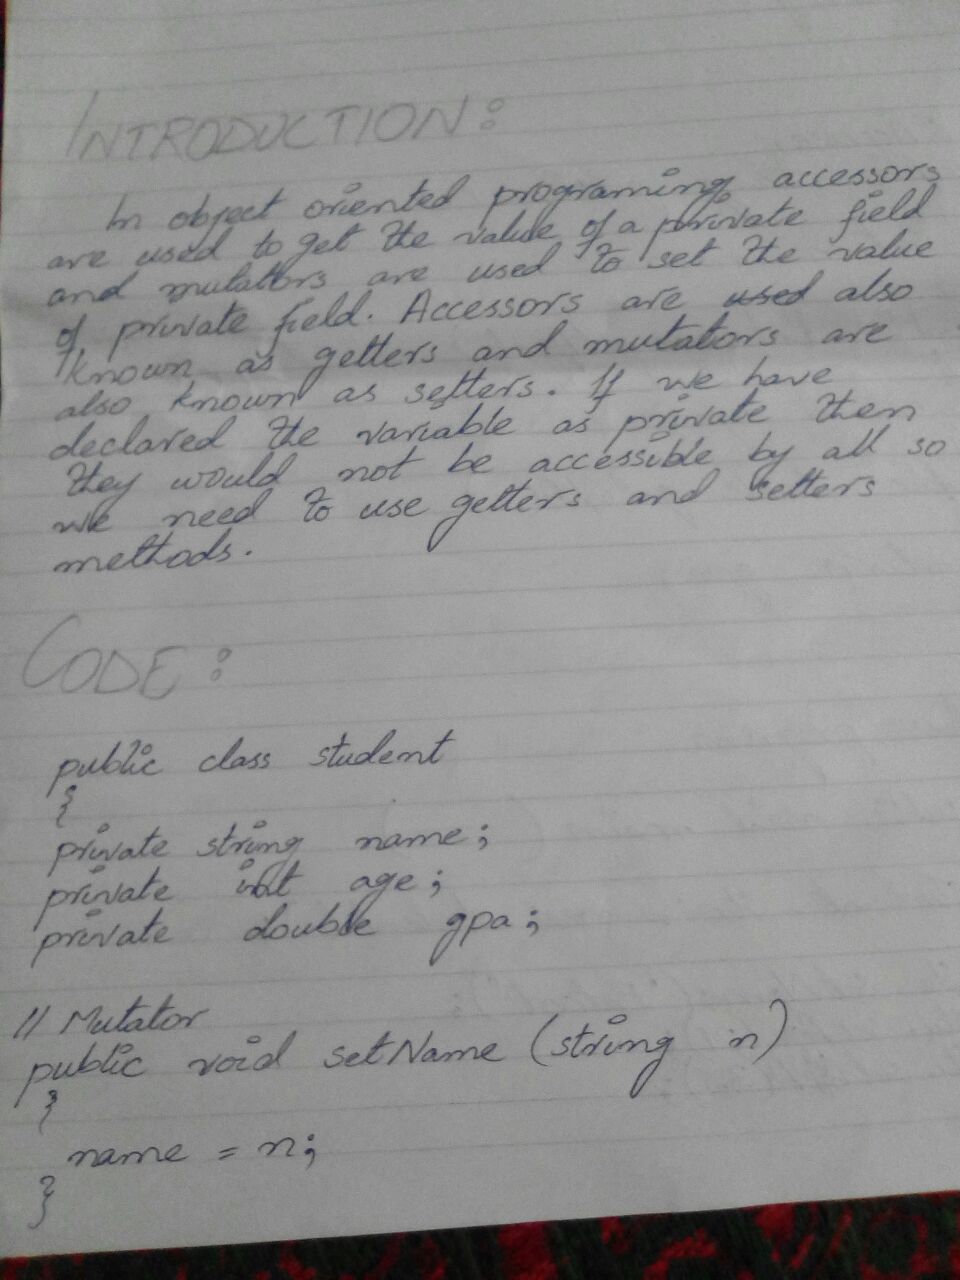 INTRODUCTION:
In object oriented programing, accessors
are used to get the value of a private field
and mutators are used to set the value
of private field. Accessors are used also
known as getters and mutators are
also known as setters. If we have
declared the variable as private then
they would not be accessible by all so
we need to use getters and setters
methods.
CODE:
public class student
{
private string name;
private int age;
private double gpa;
// Mutator
public void setName (string n)
{
name = n;
}